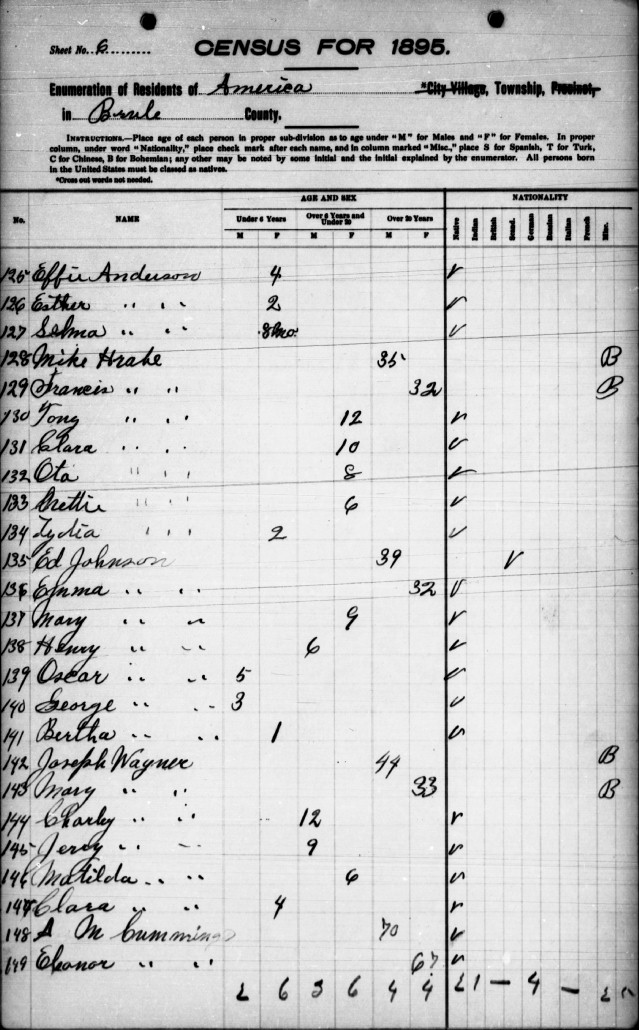 Sheet No. 6
CENSUS FOR 1895.
Enumeration of Residents of America *City Village, Township, Precinct,
in Brule County.
INSTRUCTIONS.—Place age of each person in proper sub-division as to age under "M" for Males and "F" for Females. In proper
column, under word "Nationality," place check mark after each name, and in column marked "Misc.," place S for Spanish, T for Turk,
C for Chinese, B for Bohemian; any other may be noted by some initial and the initial explained by the enumerator. All persons born
in the United States must be classed as natives.
*Cross out words not needed.
AGE AND SEX NATIONALITY
No. NAME Under 6 Years Over 6 Years and Under 20 Over 20 Years Native Indian British Scand. German Russian Italian French Misc.
M F M F M F
125 Effie Anderson 4 ✓
126 Esther " " 2 ✓
127 Selma " " 8 mo. ✓
128 Mike Hrabe 35 B
129 Francis " " 32 B
130 Tony " " 12 ✓
131 Clara " " 10 ✓
132 Ota " " 8 ✓
133 " " 6 ✓
134 Lydia " " 2 ✓
135 Ed Johnson 39 ✓
136 Emma " " 32 ✓
137 Mary " " 9 ✓
138 Henry " " 6 ✓
139 Oscar " " 5 ✓
140 George " " 3 ✓
141 Bertha " " 1 ✓
142 Joseph Wagner 44 B
143 Mary " " 33 B
144 Charly " " 12 ✓
145 Jerry " " 9 ✓
146 Matilda " " 6 ✓
147 Clara " " 4 ✓
148 A M Cummings 70 ✓
149 Elanor " " 67 ✓
2 6 3 6 4 4 21 — 4 —